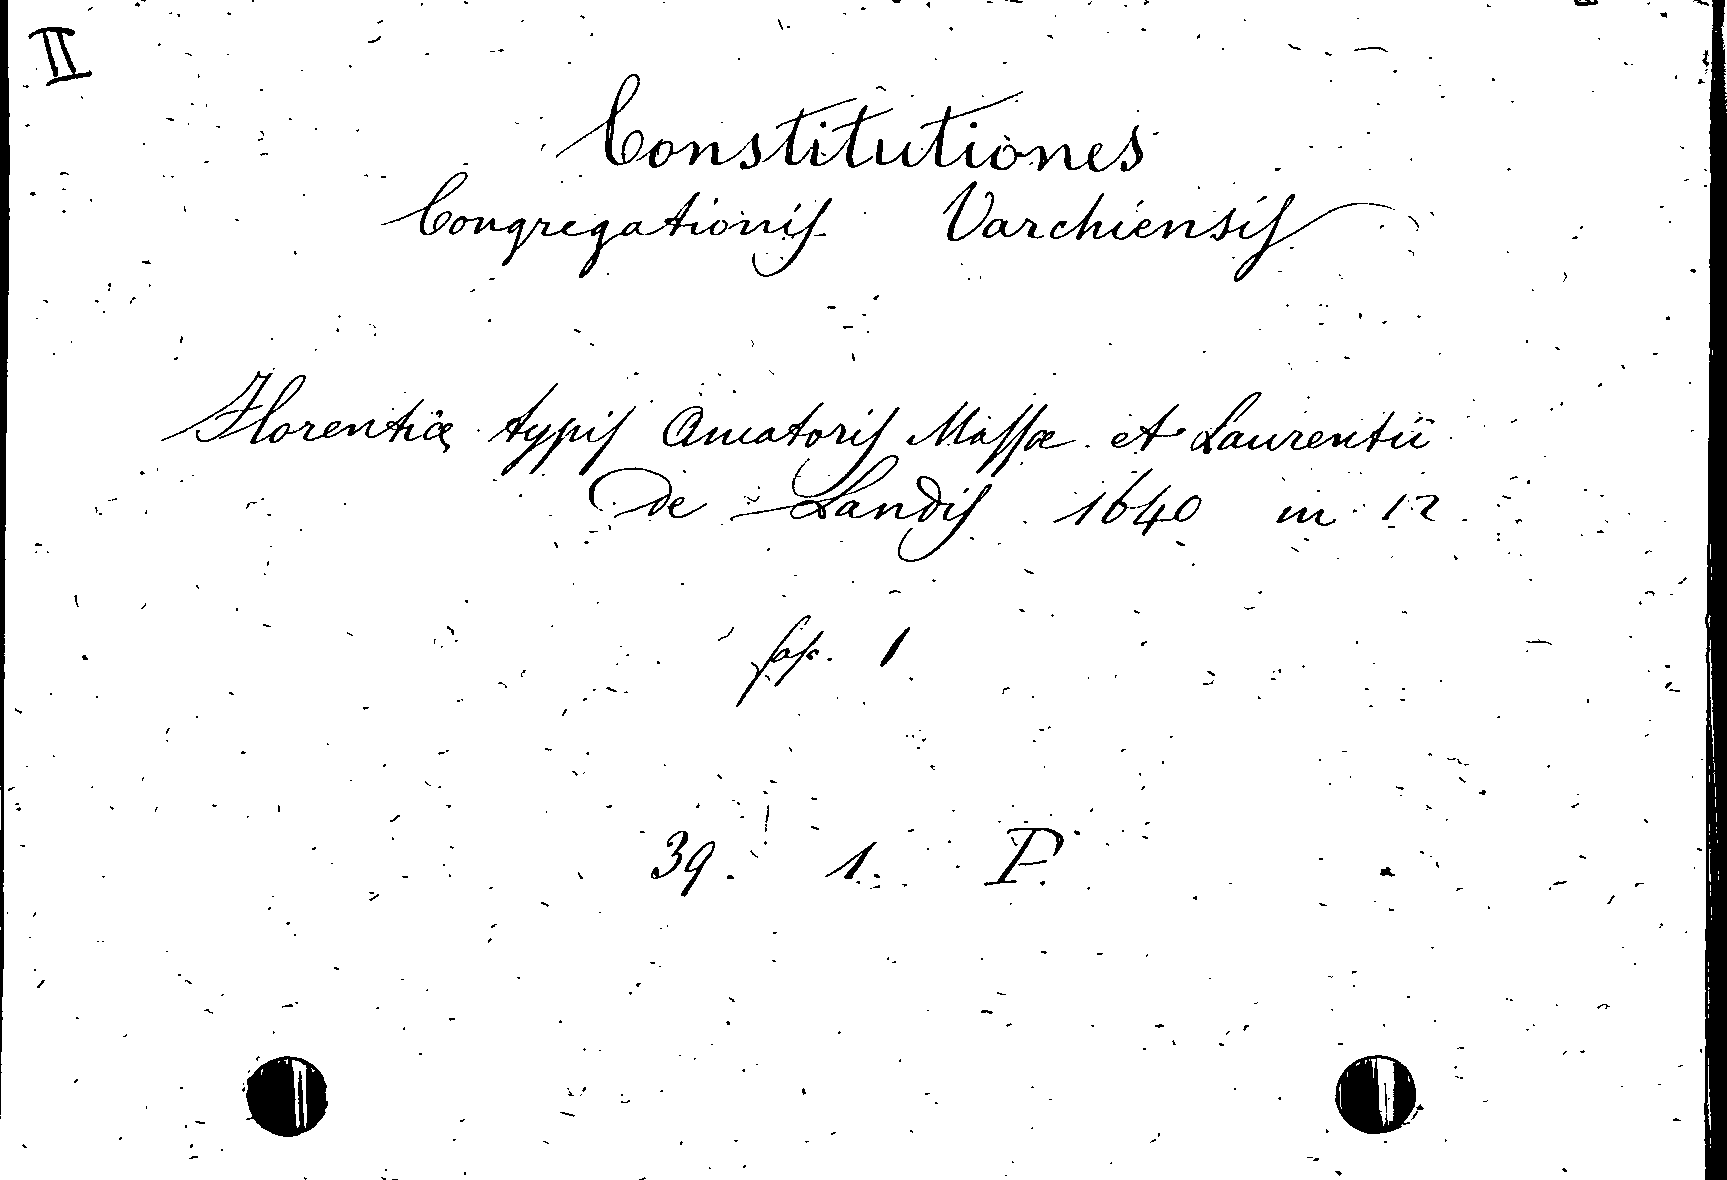 II
Constitutiones
Congregationis Varchiensis
Florentiæ typis Amatoris Massæ et Laurentii
de Landis 1640 in 12
fasc. 1
39. 1. P.